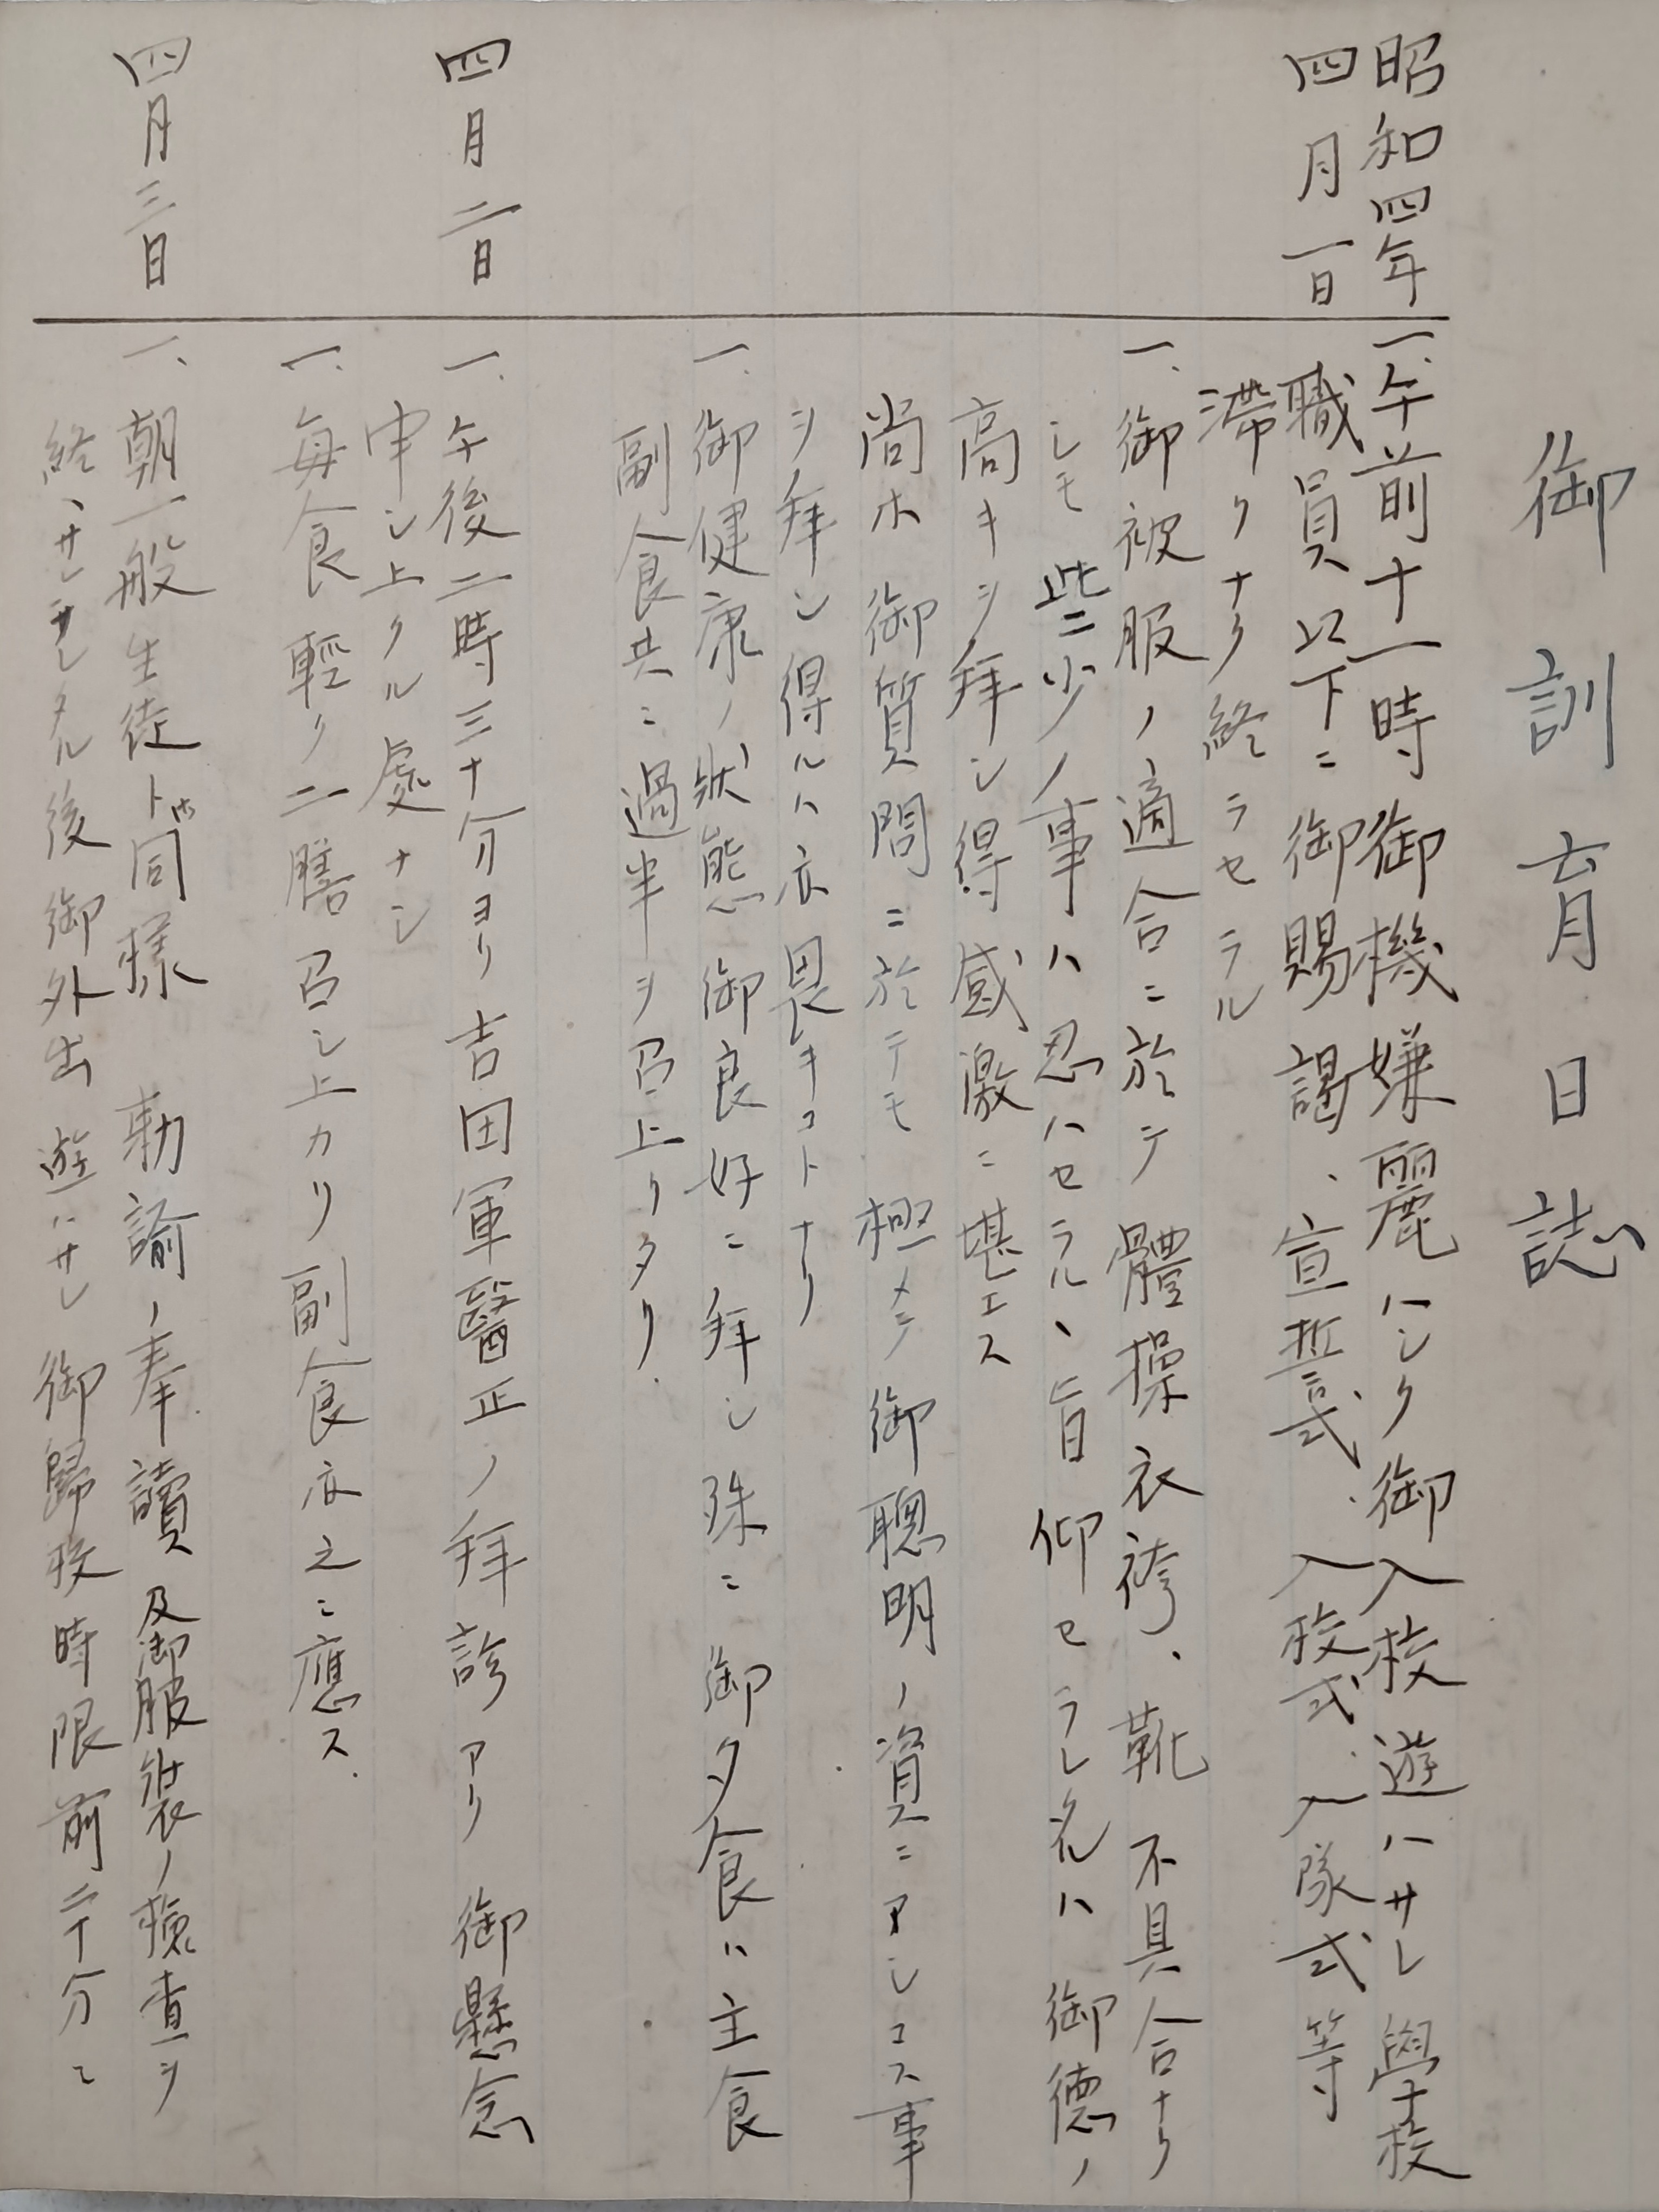 御訓育日誌
昭和四年
四月一日
一、午前十一時御機嫌麗ハシク御入校遊ハサレ學校
職員以下ニ御賜謁、宣誓式、入校式、入隊式等
滞リナク終ラセラル
一、御被服ノ適合ニ於テ體操衣袴、靴不具合ナリ
シモ些少ノ事ハ忍ハセラル、旨仰セラレタルハ御德ノ
高キヲ拜シ得感激ニ堪エス
尚ホ御質問ニ於テモ極メテ御聰明ノ資ニアレコス事
ヲ拜シ得ルハ亦畏キコトナリ
一、御健康ノ狀態御良好ニ拜シ殊ニ御夕食ハ主食
副食共ニ過半ヲ召上リタリ
四月二日
一、午後二時三十分ヨリ吉田軍醫正ノ拜診アリ御懸念
申シ上クル處ナシ
一、每食輕ク二膳召シ上カリ副食亦之ニ應ス
四月三日
一、朝一般生徒ト同樣勅諭ノ奉讀及御服裝ノ檢查ヲ
終ハサレタル後御外出遊ハサレ御歸校時限前二十分ニ